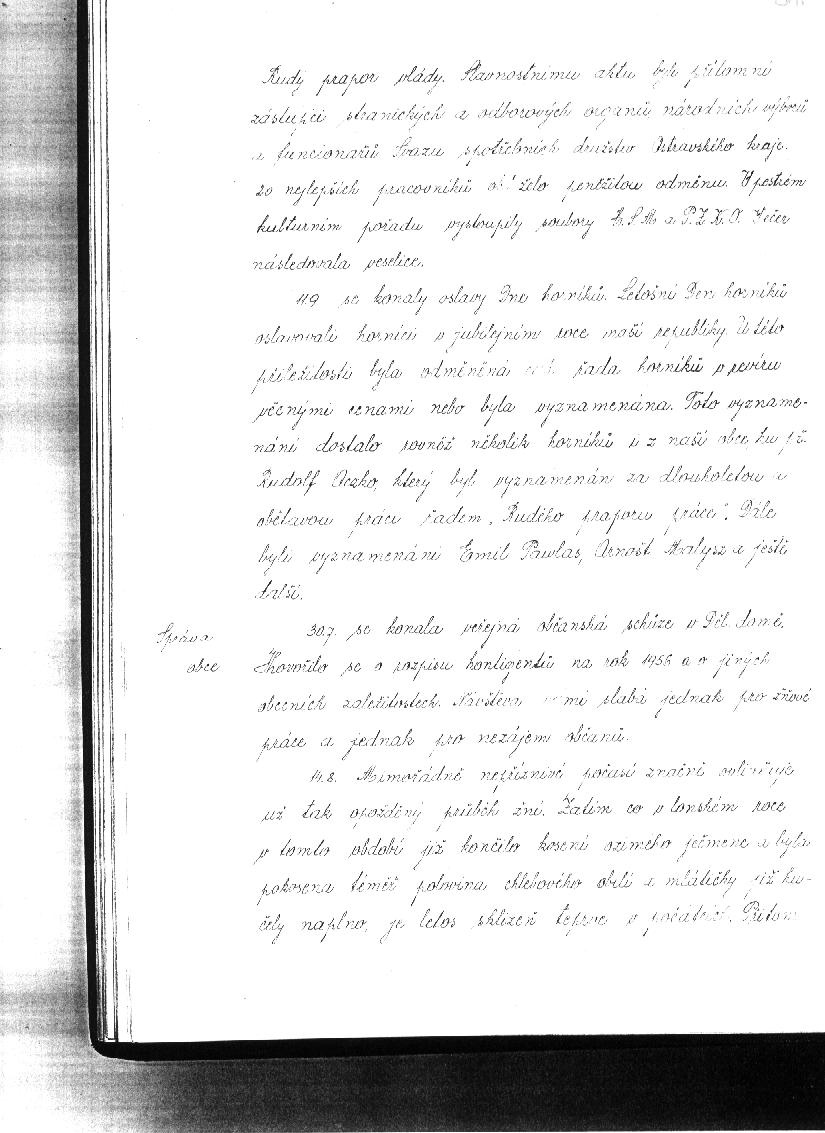 Rudý prapor vlády. Slavnostnímu aktu byli přítomni
zástupci stranických a odborových orgánů národních výborů
a funcionářů Svazu spotřebních družstv Ostravského kraje.
20 nejlepších pracovníků obdželo peněžitou odměnu. V pestrém
kulturním pořadu vystoupily soubory Č.S.M. a P.Z.K.O. Večer
následovala veselice.
11.9 se konaly oslavy Dne horníků. Letošní Den horníků
oslavovali horníci v jubilejním roce naší republiky. U této
příležitosti byla odměněná řada horníků v revíru
věcnými cenami nebo byla vyznamenána. Toto vyzname-
nání dostalo rovněž několik horníků i z naší obce, ku př.
Rudolf Oczko, který byl vyznamenán za dlouholetou a
obětavou práci řadem „Rudého praporu práce". Dále
byli vyznamenáni Emil Pawlas, Arnošt Malysz a ještě
další.
Správa
obce
30.7. se konala veřejná občanská schůze v Děl. domě.
Hovořilo se o rozpisu kontigentů na rok 1956 a o jiných
obecních zaležitostech. Návštěva slabá jednak pro žňové
práce a jednak pro nezájem občanů.
14.8. Mimořádně nepříznivé počasí značně ovlivňuje
už tak opožděný průběh žní. Zatím co v lonském roce
v tomto období již končilo kosení ozimého ječmene a byla
pokosena téměř polovina chlebového obilí a mlátičky již hu-
čely naplno, je letos sklizeň teprve v počátcích. Přitom